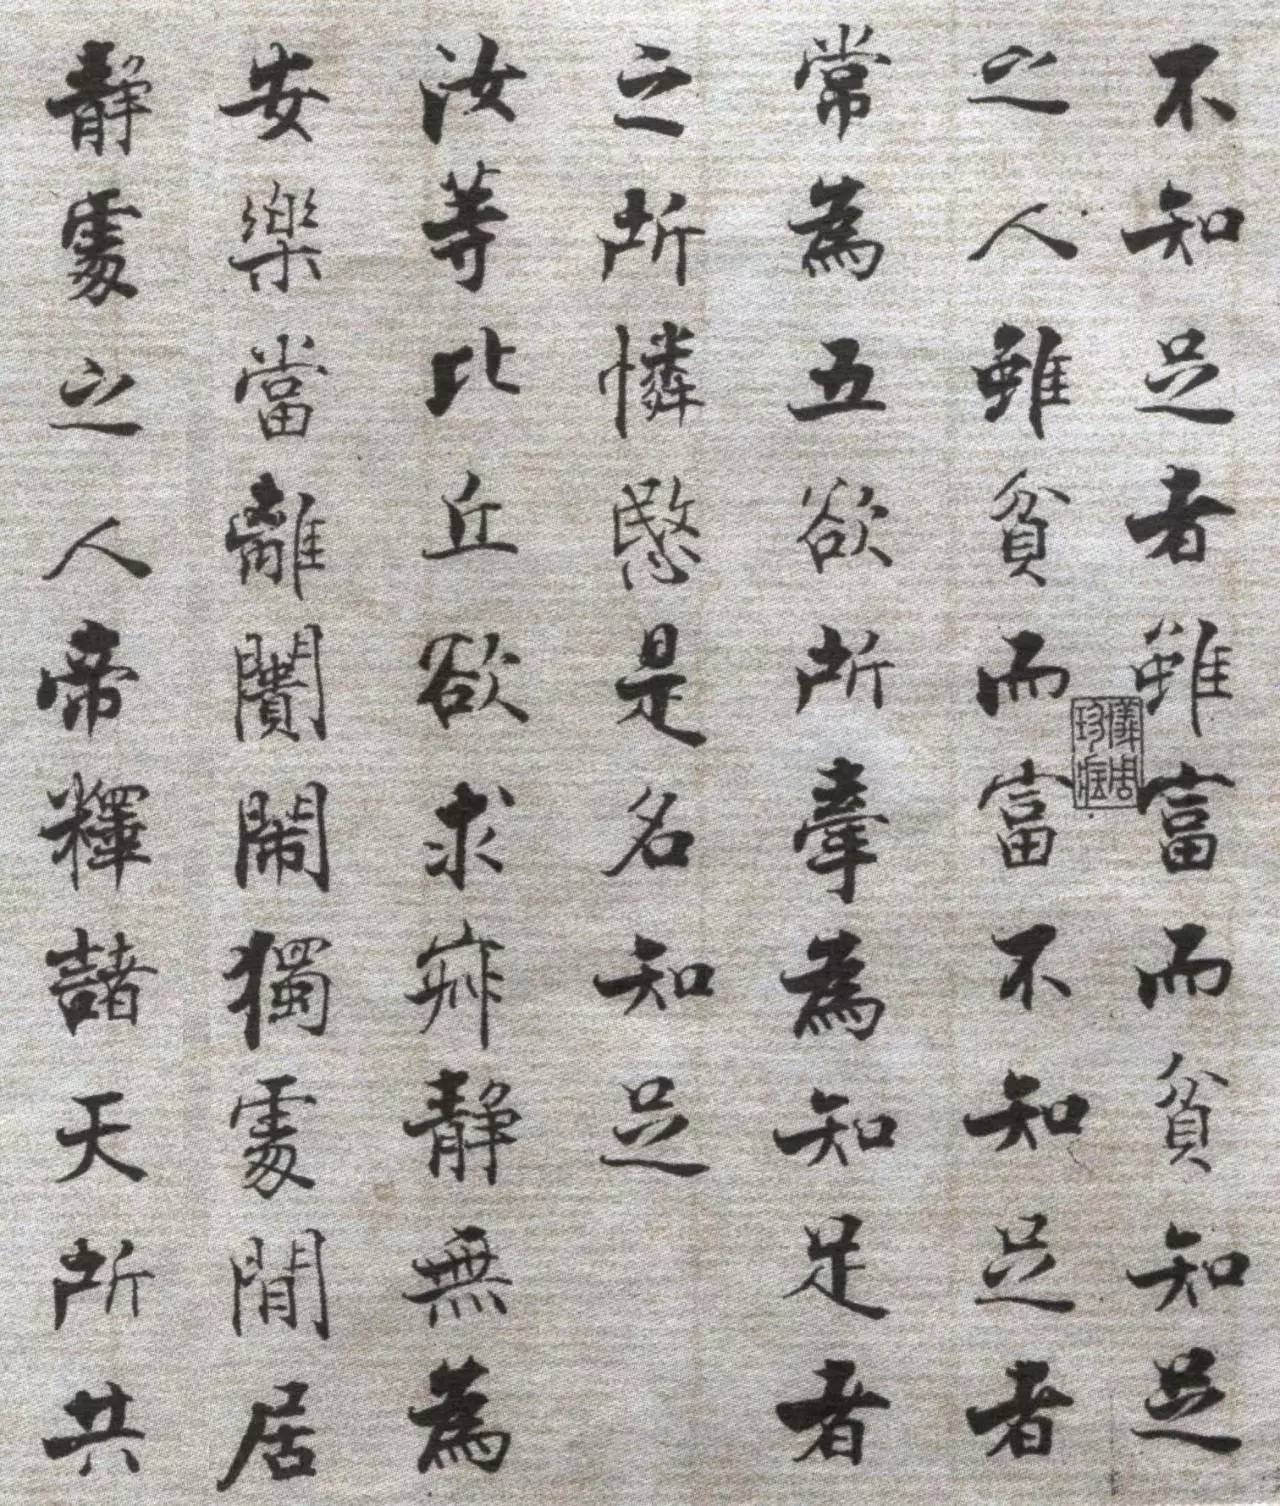 不知足者雖富而貧知足
之人雖貧而富不知足者
常為五欲所牽為知足者
之所憐愍是名知足
汝等比丘欲求寂靜無為
安樂當離闠閙獨處閒居
靜處之人帝釋諸天所共